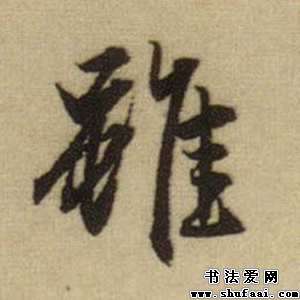 雖
书法爱网
www.shufaai.com